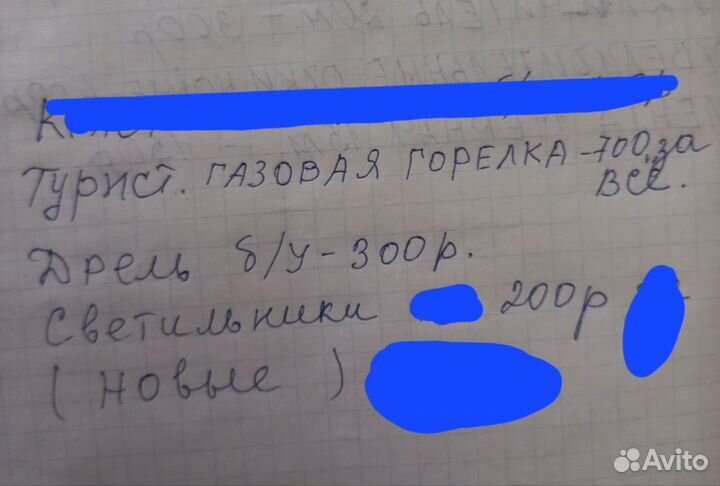 Турист. ГАЗОВАЯ ГОРЕЛКА - 700 за
ВСЕ.
Дрель б/у - 300 р.
Светильники 200 р
( новые )
Avito